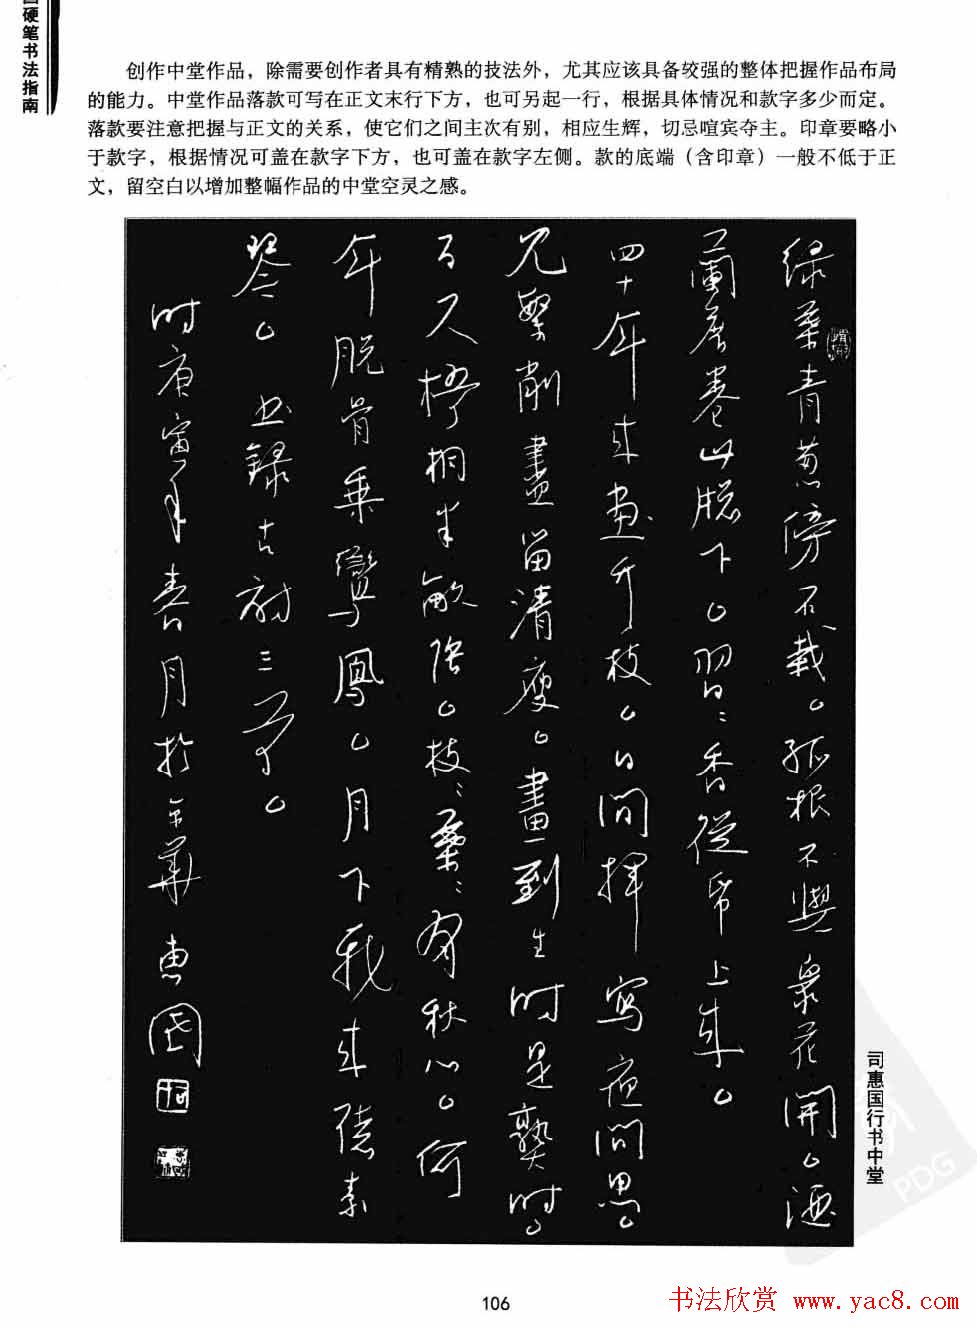 国硬笔书法指南
创作中堂作品，除需要创作者具有精熟的技法外，尤其应该具备较强的整体把握作品布局
的能力。中堂作品落款可写在正文末行下方，也可另起一行，根据具体情况和款字多少而定。
落款要注意把握与正文的关系，使它们之间主次有别，相应生辉，切忌喧宾夺主。印章要略小
于款字，根据情况可盖在款字下方，也可盖在款字左侧。款的底端（含印章）一般不低于正
文，留空白以增加整幅作品的中堂空灵之感。
緑葉青葱傍石栽。孤根不與衆花開。酒
闌展卷山牕下。習〻香從紙上來。
四十年來畫竹枝。日間揮寫夜間思。
冗繁削盡留清瘦。畫到生時是熟時。
百尺梧桐半畝陰。枝〻葉〻有秋心。何
年脱骨乘鸞鳳。月下飛來聽素
琴。书録古詩三首。
時庚寅年春月於京華惠國
司惠国行书中堂
PDG
106
书法欣赏 www.yac8.com